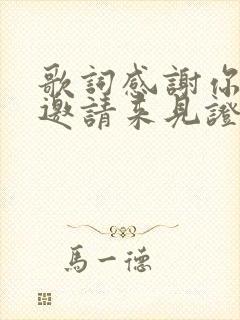 歌詞感謝你
邀請来見證
馬一德